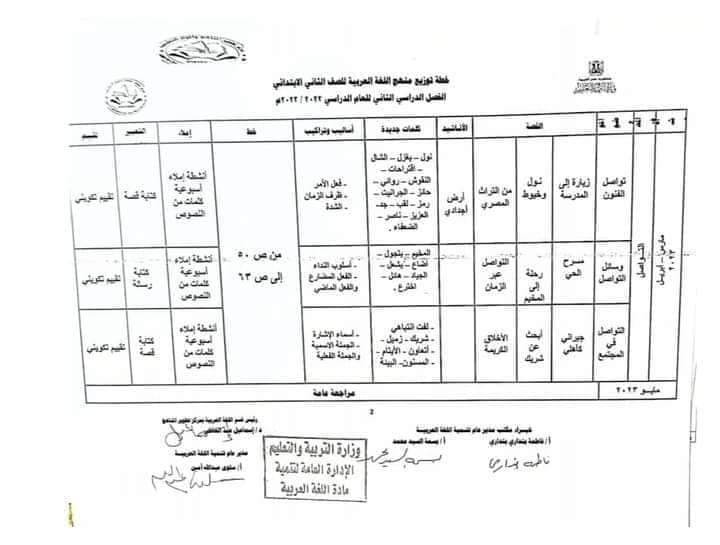 خطة توزيع منهج اللغة العربية للصف الثاني الابتدائي
الفصل الدراسي الثاني للعام الدراسي ٢٠٢٢ / ٢٠٢٣م
القصة
الأناشيد
كلمات جديدة
أساليب وتراكيب
خط
إملاء
التعبير
تقييم
مارس – إبريل
٢٠٢٣
التواصل
تواصل
الفنون
زيارة إلى
المدرسة
نول
وخيوط
من التراث
المصري
أرض
أجدادي
نول – يغزل – الشال
– اقتراحات –
النقوش – رواني –
حائز – الجرانيت –
رمز – لقب – جد–
العزيز – ناصر –
الضعفاء .
- فعل الأمر
- ظرف الزمان
- الشدة
من ص ٥٠
إلى ص ٦٣
أنشطة إملاء
أسبوعية
كلمات من
النصوص
كتابة قصة
تقييم تكويني
وسائل
التواصل
مسرح
الحي
رحلة
إلى
المخيم
التواصل
عبر
الزمان
المخيم – يتجول –
أضاع – يشعل –
الجياد – هائل –
اخترع .
- أسلوب النداء
- الفعل المضارع
والفعل الماضي
أنشطة إملاء
أسبوعية
كلمات من
النصوص
كتابة
رسالة
تقييم تكويني
التواصل
في
المجتمع
جيراني
كأهلي
أبحث
عن
شريك
الأخلاق
الكريمة
- لفت انتباهي
- شريك – زميل –
- أتعاون – الأيتام –
- المسنون– البيئة
- أسماء الإشارة
- الجملة الاسمية
والجملة الفعلية
أنشطة إملاء
أسبوعية
كلمات من
النصوص
كتابة
قصة
تقييم تكويني
مايو ٢٠٢٣
مراجعة عامة
2
خبراء مكتب مدير عام تنمية اللغة العربية
أ / فاطمة بنداري بنداري
أ / بسمة السيد محمد
رئيس قسم اللغة العربية بمركز تطوير المناهج
مدير عام تنمية اللغة العربية
أ / سلوى عبدالله أمين
وزارة التربية والتعليم
الإدارة العامة لتنمية
مادة اللغة العربية